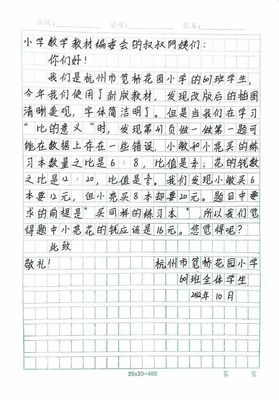 小学数学教材编委会的叔叔阿姨们：
你们好！
我们是杭州市笕桥花园小学的601班学生，
今年我们使用了新版教材，发现改版后的插图
清晰美观，字体简洁明了。但是当我们在学习
“比的意义”时，发现第41页做一做第一题可
能在数据上存在一些错误，小敏和小亮买的练
习本数量之比是6：8，比值是3/4；花的钱数
之比是12：20，比值是3/5。我们发现小敏买6
本要12元，但小亮买8本却要20元。题目中要
求的前提是“买同样的练习本”，所以我们觉
得题中小亮花的钱应该是16元。您觉得呢？
此致
敬礼！
杭州市笕桥花园小学
601班全体学生
2022年10月
20×20=400
第 页